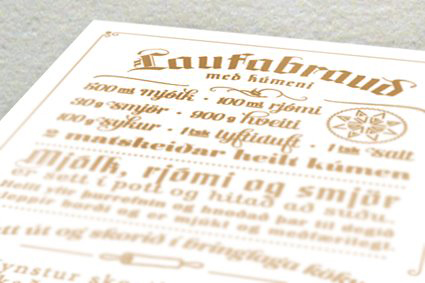 Laufabrauð
með kúmeni
500 ml mjólk · 100 ml rjómi
30g smjör · 900 g hveiti
100g sykur · 1 tsk lyftiduft · 1 tsk salt
2 matskeiðar heilt kúmen
Mjólk, rjómi og smjör
er sett í pott og hitað að suðu.
Heitt sett þurrefnin og hnoðað þar til degið
sleppir borði og er mjúkt og meðfærilegt.
út og skorið í kringlaga